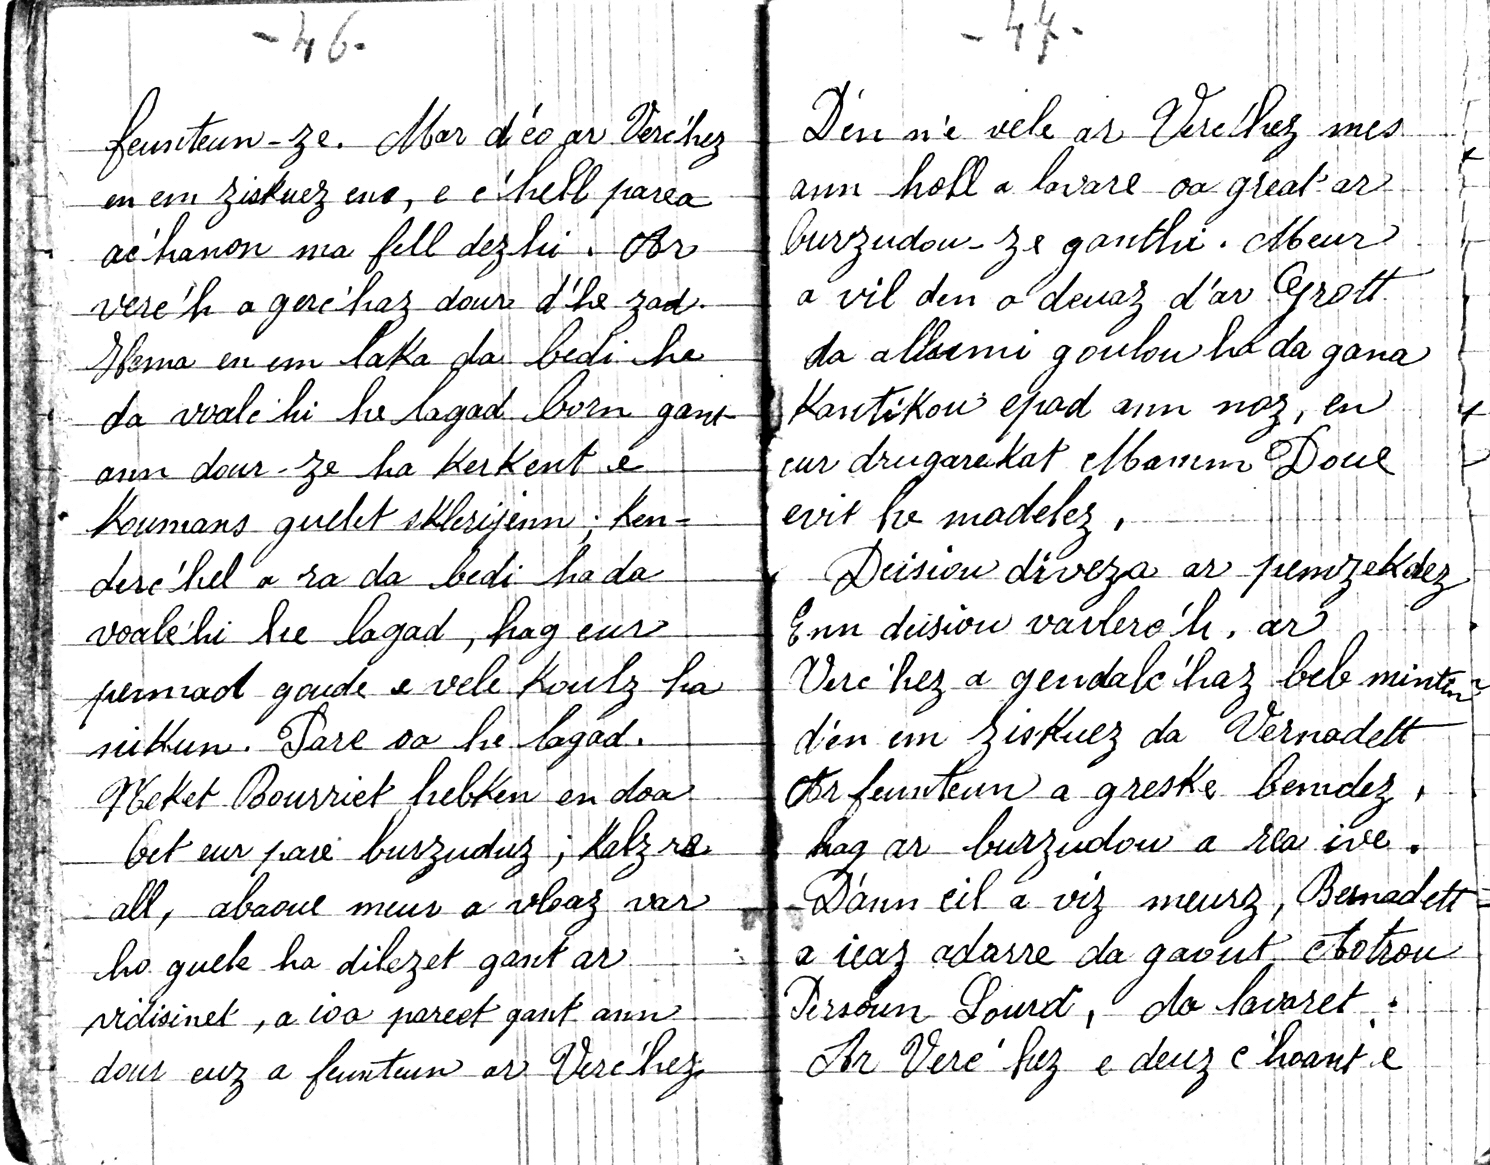 - 46 -
feunteun-ze. Mar d'éo ar Verc'hez
en em ziskuez eno, e c'hell parea
ac'hanon ma fell dezhi. Ar
verc'h a gerc'haz dour d'he zad.
Hema en em laka da bedi he
da voalc'hi he lagad born gant
ann dour-ze ha kerkent e
koumans guelet sklerijenn ; ken-
derc'hel a ra da bedi ha da
voalc'hi he lagad, hag eur
pennad goude e vele koulz ha
nikun. Pare oa he lagad.
Neket Bourriet hebken en doa
bet eur pare burzuduz ; kalz re
all, abaoue meur a vloaz var
ho guele ha dilezet gant ar
vidisinet, a ioa pareet gant ann
dour euz a feunteun ar Verc'hez
- 47 -
Den n'e vele ar Verc'hez mes
ann holl a lavare oa great ar
burzudou-ze ganthi. Meur
a vil den a deuaz d'ar Grott
da allumi goulou ha da gana
kantikou epad ann noz, en
eur drugarekat Mamm Doue
evit he madelez.
Deisiou diveza ar pemzekdez
Enn deisiou varlerc'h, ar
Verc'hez a gendalc'haz beb mintin
d'en em ziskuez da Vernadett
Ar feunteun a greske bemdez,
hag ar burzudou a rea ive.
D'ann eil a viz meurz, Bernadett
a ieaz adarre da gaout Aotrou
Persoun Lourd, da lavaret :
Ar Verc'hez e deuz c'hoant e